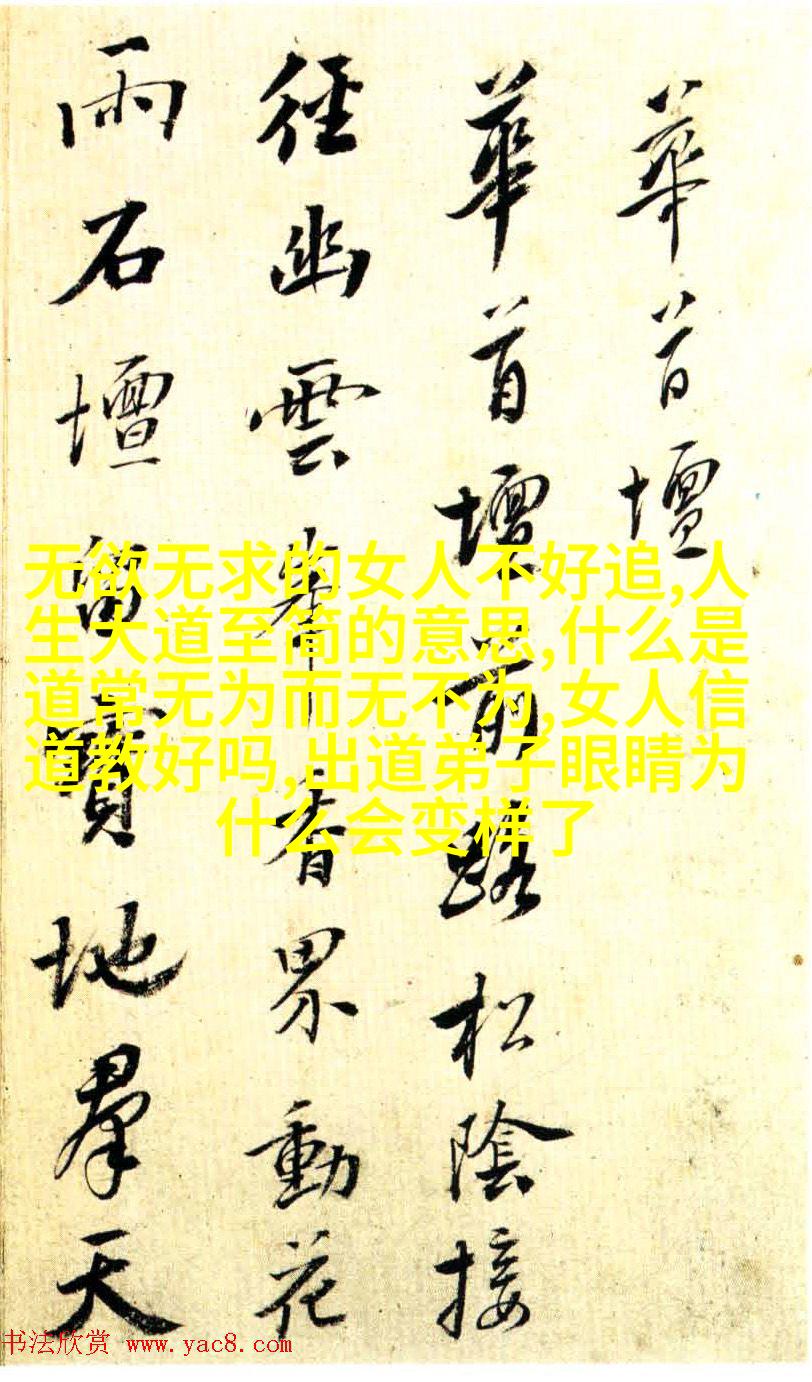 華首壇
華首壇前路松陰接
徑幽雲峯香界動花
雨石壇留寶地羣天
无欲无求的女人不好追,人
生大道至简的意思,什么是
道常无为而无不为,女人信
道教好吗,出道弟子眼睛为
什么会变样了
书法欣赏 www.yac8.com